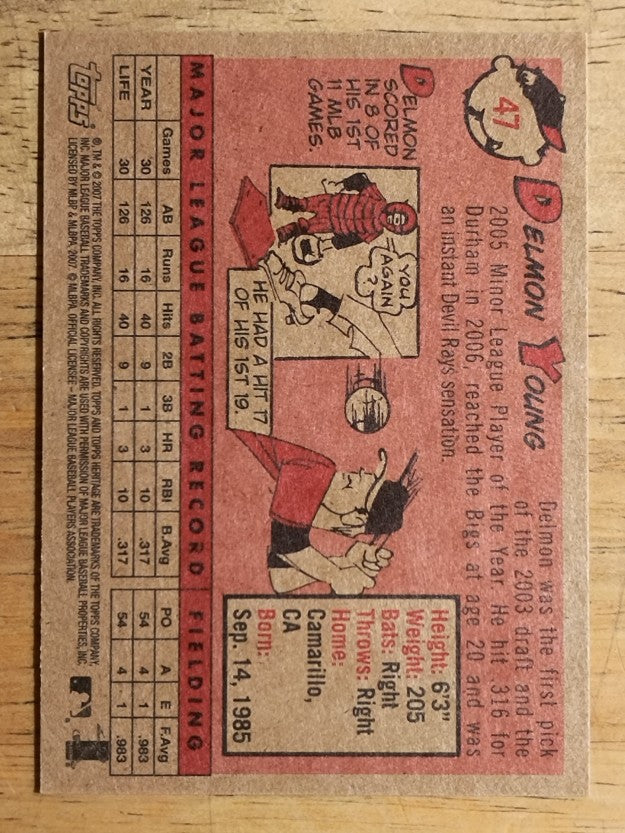 47
DELMON YOUNG
Delmon was the first pick
of the 2003 draft and the
2005 Minor League Player of the Year. He hit .316 for
Durham in 2006, reached the Bigs at age 20 and was
an instant Devil Rays sensation.
DELMON
SCORED
IN 8 OF
HIS 1ST
11 MLB
GAMES.
YOU
AGAIN
?
HE HAD A HIT 17
OF HIS 1ST 19.
Height: 6'3"
Weight: 205
Bats: Right
Throws: Right
Home:
Camarillo,
CA
Born:
Sep. 14, 1985
MAJOR LEAGUE BATTING RECORD FIELDING
Games AB Runs Hits 2B 3B HR RBI B.Avg PO A E F.Avg
YEAR 30 126 16 40 9 1 3 10 .317 54 4 1 .983
LIFE 30 126 16 40 9 1 3 10 .317 54 4 1 .983
Topps
®, TM & © 2007 THE TOPPS COMPANY, INC. ALL RIGHTS RESERVED. TOPPS AND TOPPS HERITAGE ARE TRADEMARKS OF THE TOPPS COMPANY,
INC. MAJOR LEAGUE BASEBALL TRADEMARKS AND COPYRIGHTS ARE USED WITH PERMISSION OF MAJOR LEAGUE BASEBALL PROPERTIES, INC.
LICENSED BY MLBP & MLBPA, 2007. © MLBPA, OFFICIAL LICENSEE – MAJOR LEAGUE BASEBALL PLAYERS ASSOCIATION.